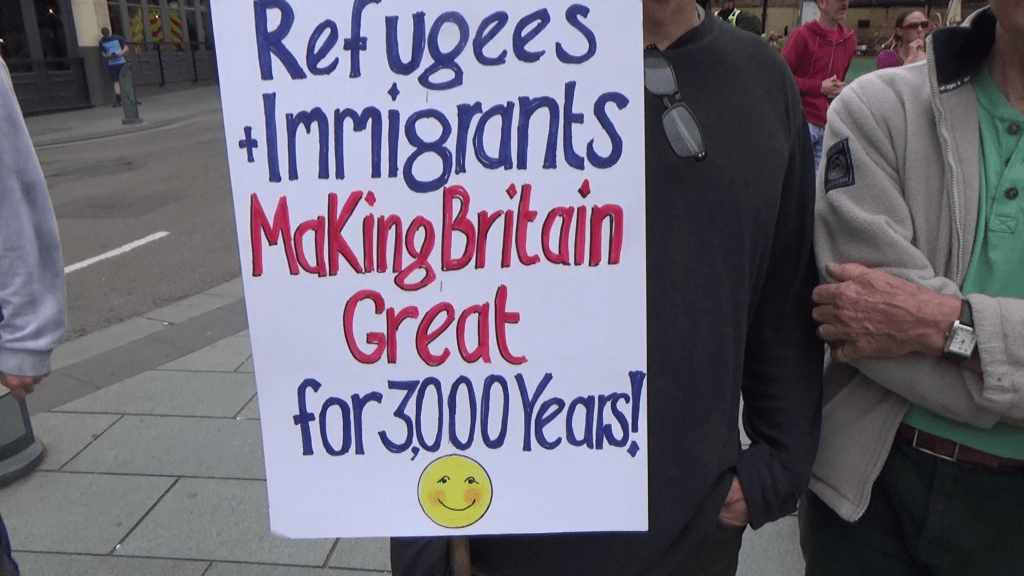 Refugees
+Immigrants
Making Britain
Great
for 3,000 Years!